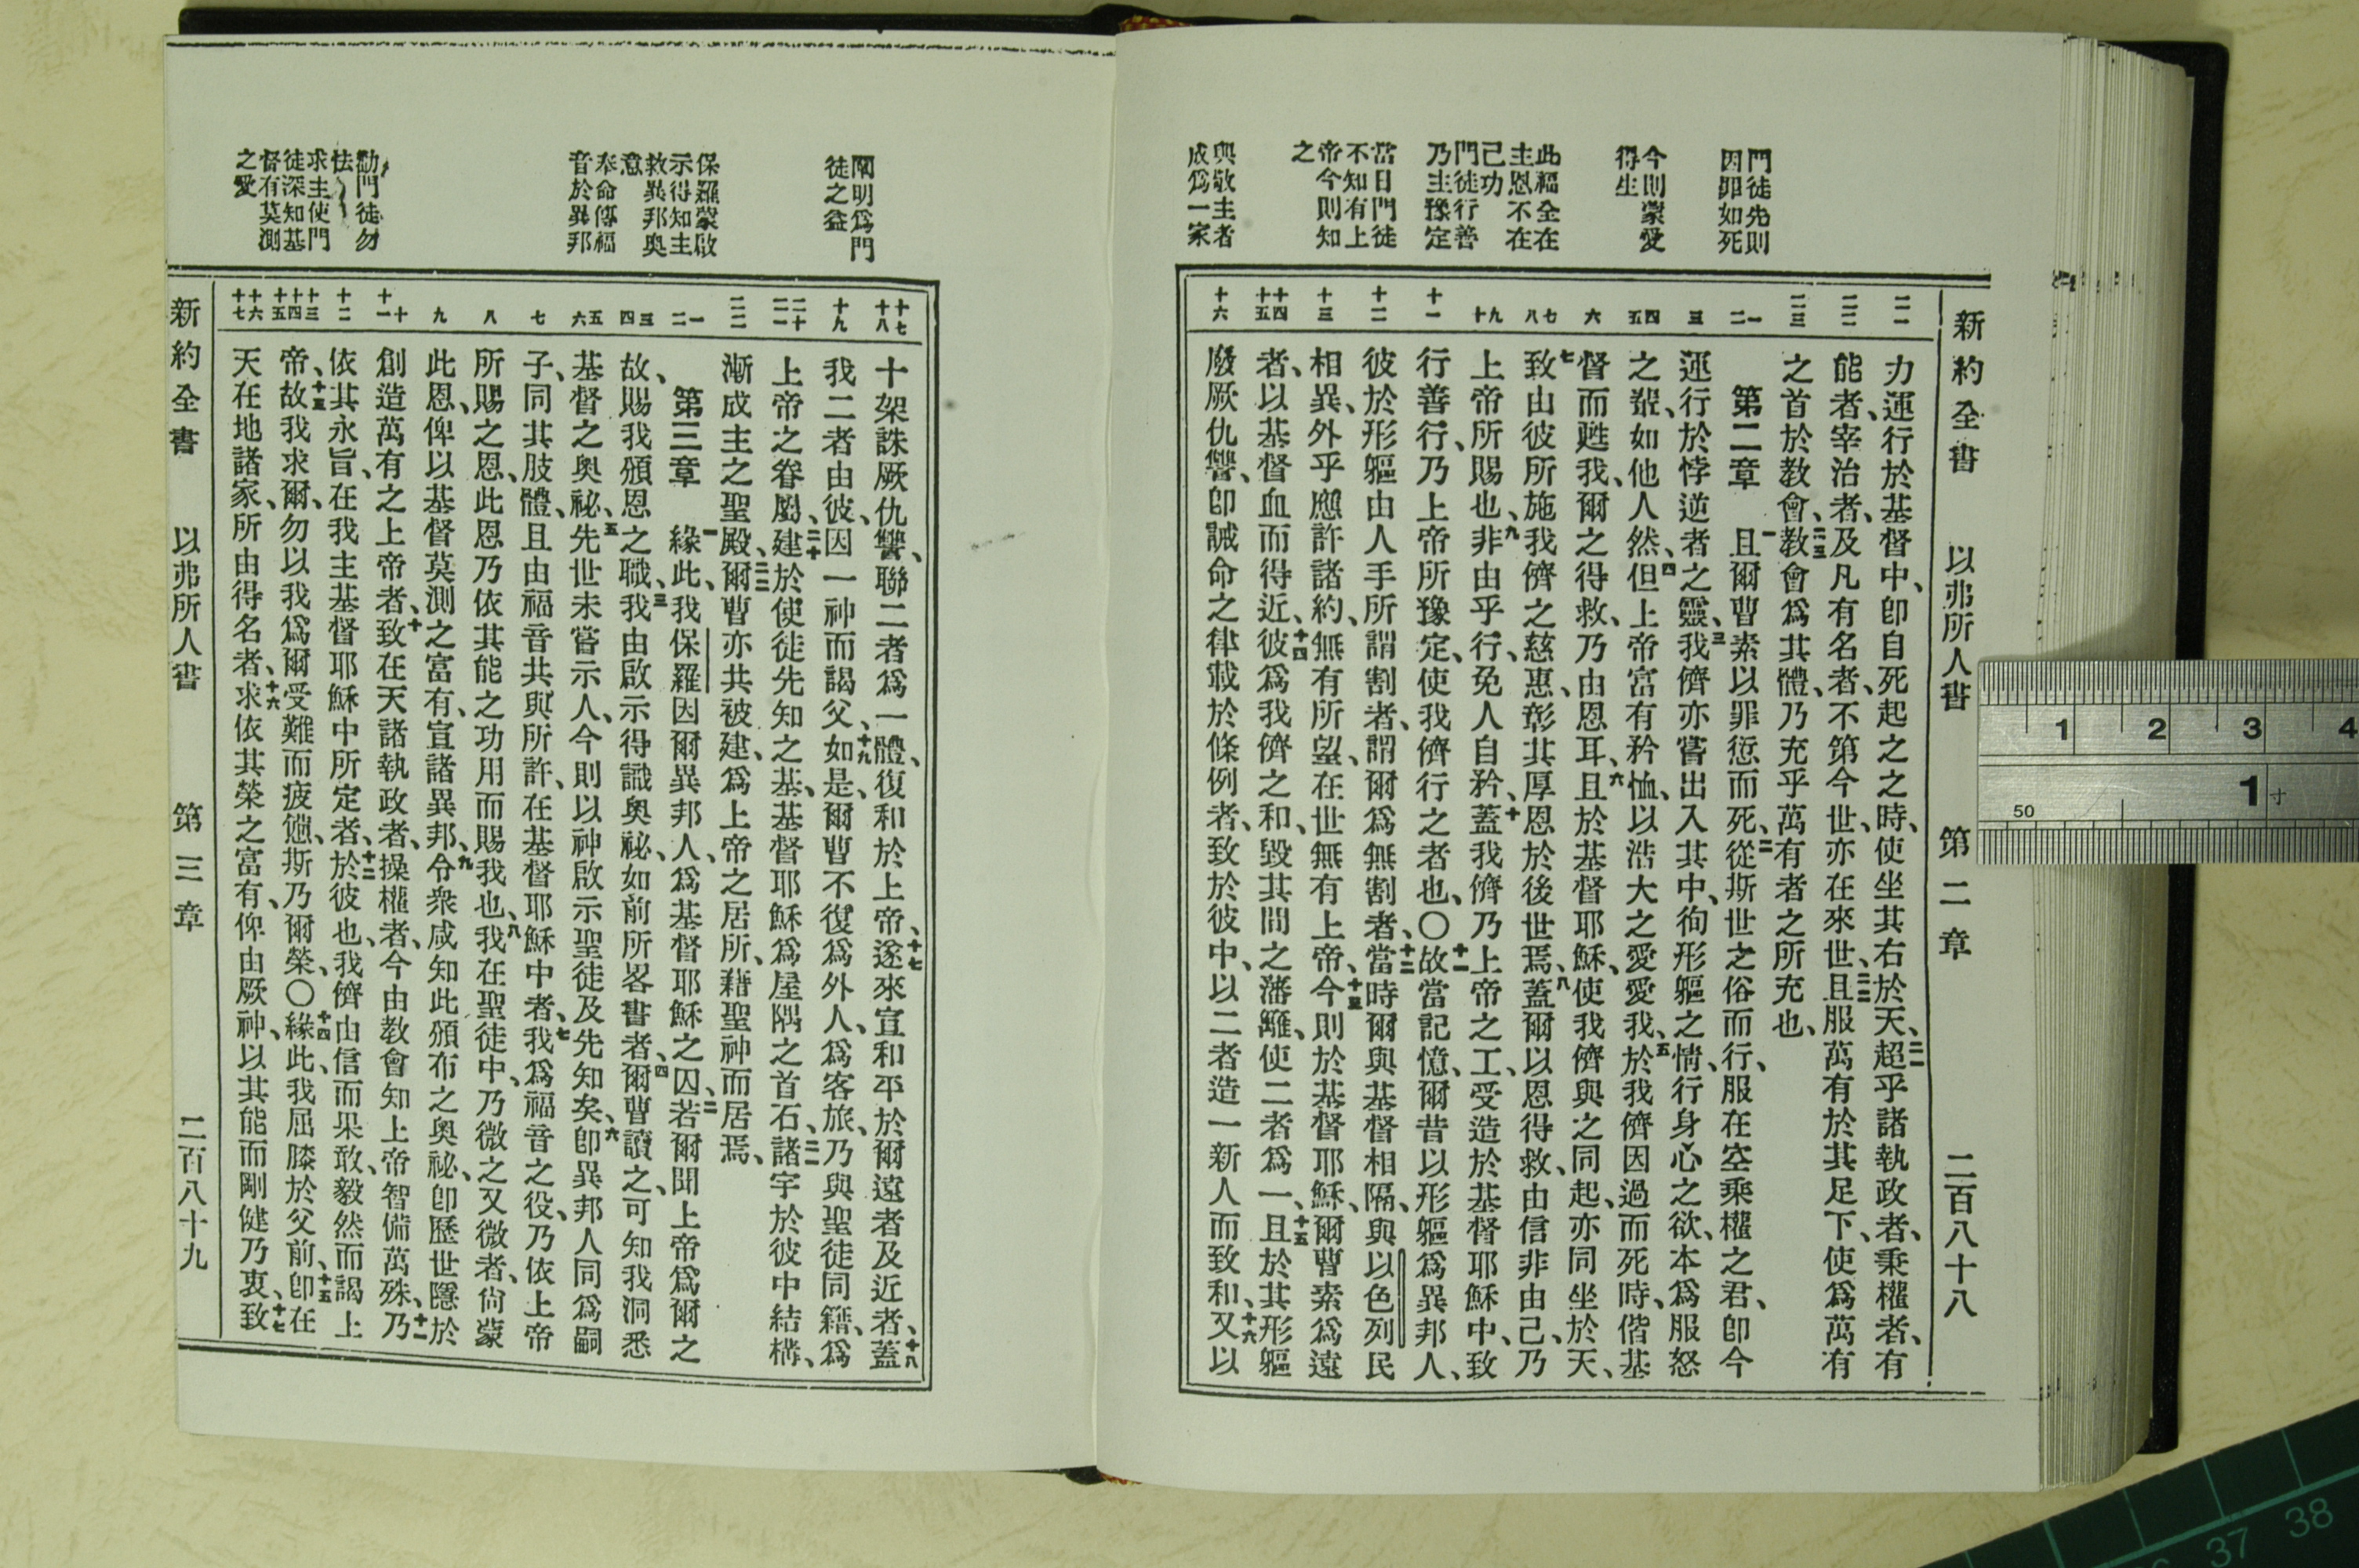 新約全書 以弗所人書 第二章 二百八十八
門徒先則
因罪如死
今則蒙愛
得生
此福全在
主恩不在
己功
門徒行善
乃主豫定
當日門徒
不知有上
帝今則知
之
與敬主者
成爲一家
二一
二二
二三
一
二
三
四
五
六
七
八
九
十
十一
十二
十三
十四
十五
十六
力運行於基督中、卽自死起之之時、使坐其右於天、二一超乎諸執政者、秉權者、有
能者、宰治者、及凡有名者、不第今世、亦在來世、二二且服萬有於其足下、使爲萬有
之首於教會、二三教會爲其體、乃充乎萬有者之所充也、
第二章 一且爾曹素以罪愆而死、二從斯世之俗而行、服在空乘權之君、卽今
運行於悖逆者之靈、三我儕亦嘗出入其中、徇形軀之情、行身心之欲、本爲服怒
之輩、如他人然、四但上帝富有矜恤、以浩大之愛愛我、五於我儕因過而死時、偕基
督而甦我、爾之得救、乃由恩耳、六且於基督耶穌、使我儕與之同起、亦同坐於天、
七致由彼所施我儕之慈惠、彰其厚恩於後世焉、八蓋爾以恩得救、由信非由己、乃
上帝所賜也、九非由乎行、免人自矜、十蓋我儕乃上帝之工、受造於基督耶穌中、致
行善行、乃上帝所豫定、使我儕行之者也、〇十一故當記憶、爾昔以形軀爲異邦人、
彼於形軀由人手所謂割者、謂爾爲無割者、十二當時爾與基督相隔、與以色列民
相異、外乎應許諸約、無有所望、在世無有上帝、十三今則於基督耶穌、爾曹素爲遠
者、以基督血而得近、十四彼爲我儕之和、毀其間之藩籬、使二者爲一、十五且於其形軀
廢厥仇讐、卽誡命之律載於條例者、致於彼中、以二者造一新人而致和、十六又以
闡明爲門
徒之益
保羅蒙啟
示得知主
救異邦奧
意
奉命傳福
音於異邦
勸門徒勿
怯
求主使門
徒深知基
督有莫測
之愛
十七
十八
十九
二十
二一
二二
一
二
三
四
五
六
七
八
九
十
十一
十二
十三
十四
十五
十六
十七
十架誅厥仇讐、聯二者爲一體、復和於上帝、十七遂來宣和平於爾遠者及近者、十八蓋
我二者由彼、因一神而謁父、十九如是、爾曹不復爲外人、爲客旅、乃與聖徒同籍、爲
上帝之眷屬、二十建於使徒先知之基、基督耶穌爲屋隅之首石、二一諸宇於彼中結構、
漸成主之聖殿、二二爾曹亦共被建、爲上帝之居所、藉聖神而居焉、
第三章 一緣此、我保羅因爾異邦人、爲基督耶穌之囚、二若爾聞上帝爲爾之
故、賜我頒恩之職、三我由啟示得識奧祕、如前所畧書者、四爾曹讀之、可知我洞悉
基督之奧祕、五先世未嘗示人、今則以神啟示聖徒及先知矣、六卽異邦人同爲嗣
子、同其肢體、且由福音共與所許、在基督耶穌中者、七我爲福音之役、乃依上帝
所賜之恩、此恩乃依其能之功用而賜我也、八我在聖徒中、乃微之又微者、尙蒙
此恩、俾以基督莫測之富有、宣諸異邦、九令衆咸知此頒布之奧祕、卽歷世隱於
創造萬有之上帝者、十致在天諸執政者、操權者、今由教會知上帝智備萬殊、十一乃
依其永旨、在我主基督耶穌中所定者、十二於彼也、我儕由信而果敢、毅然而謁上
帝、十三故我求爾、勿以我爲爾受難而疲憊、斯乃爾榮、〇十四緣此、我屈膝於父前、十五卽在
天在地諸家、所由得名者、十六求依其榮之富有、俾由厥神、以其能而剛健乃衷、十七致
新約全書 以弗所人書 第三章 二百八十九
1 2 3 4
50 1
37 38